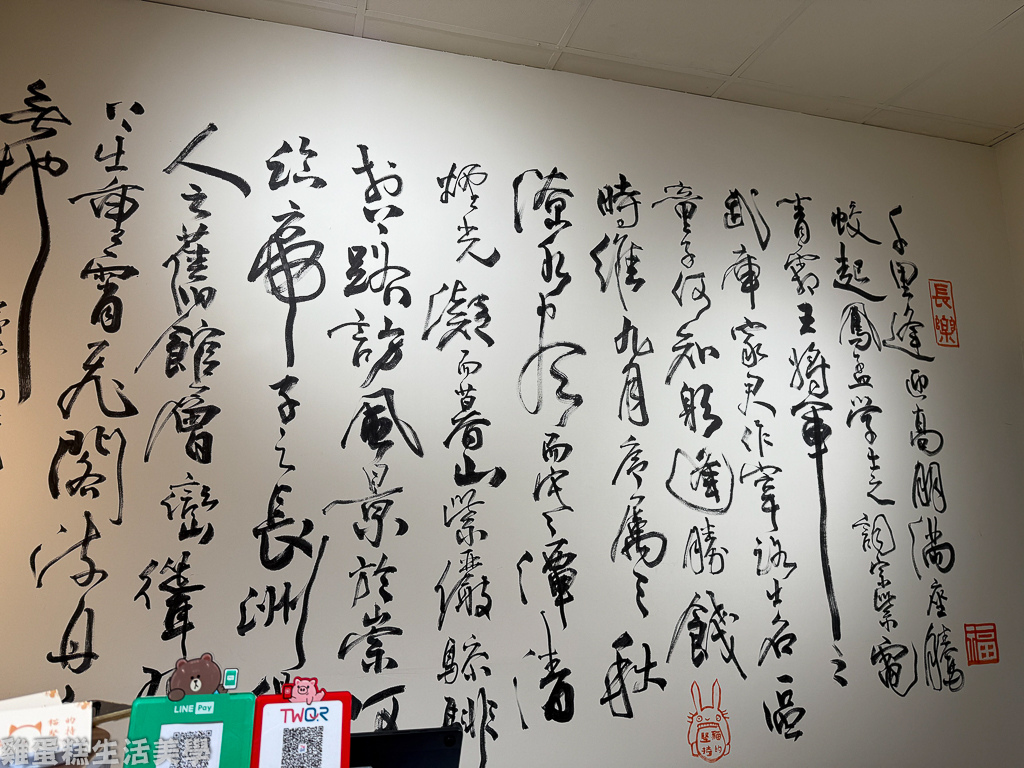 千里逢迎高朋滿座騰
蛟起鳳孟学士之詞宗紫電
青霜王將軍之
武庫家君作宰路出名區
童子何知躬逢勝餞
時維九月序屬三秋
潦水盡而寒潭清
煙光凝而暮山紫儼驂騑
於上路訪風景於崇阿
臨帝子之長洲得
人之舊館層巒聳
上出重霄飛閣流丹
無地
長樂
福
貓的
堅持
LINE Pay
TWQR
雞蛋糕生活美學